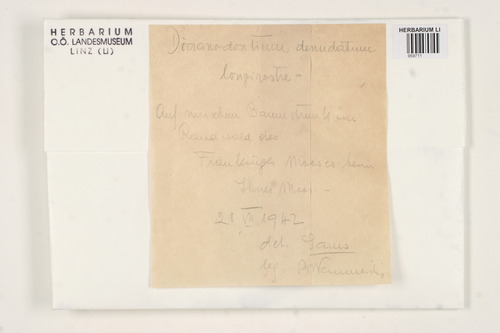 HERBARIUM
O.Ö. LANDESMUSEUM
LINZ (LI)
HERBARIUM LI
Dicranodontium denudatum
longirostre -
Auf morschen Baumstrunk im
Randwald des
Frankinger Mooses beim
Moos -
21 VII 1942
det. Gams
leg.